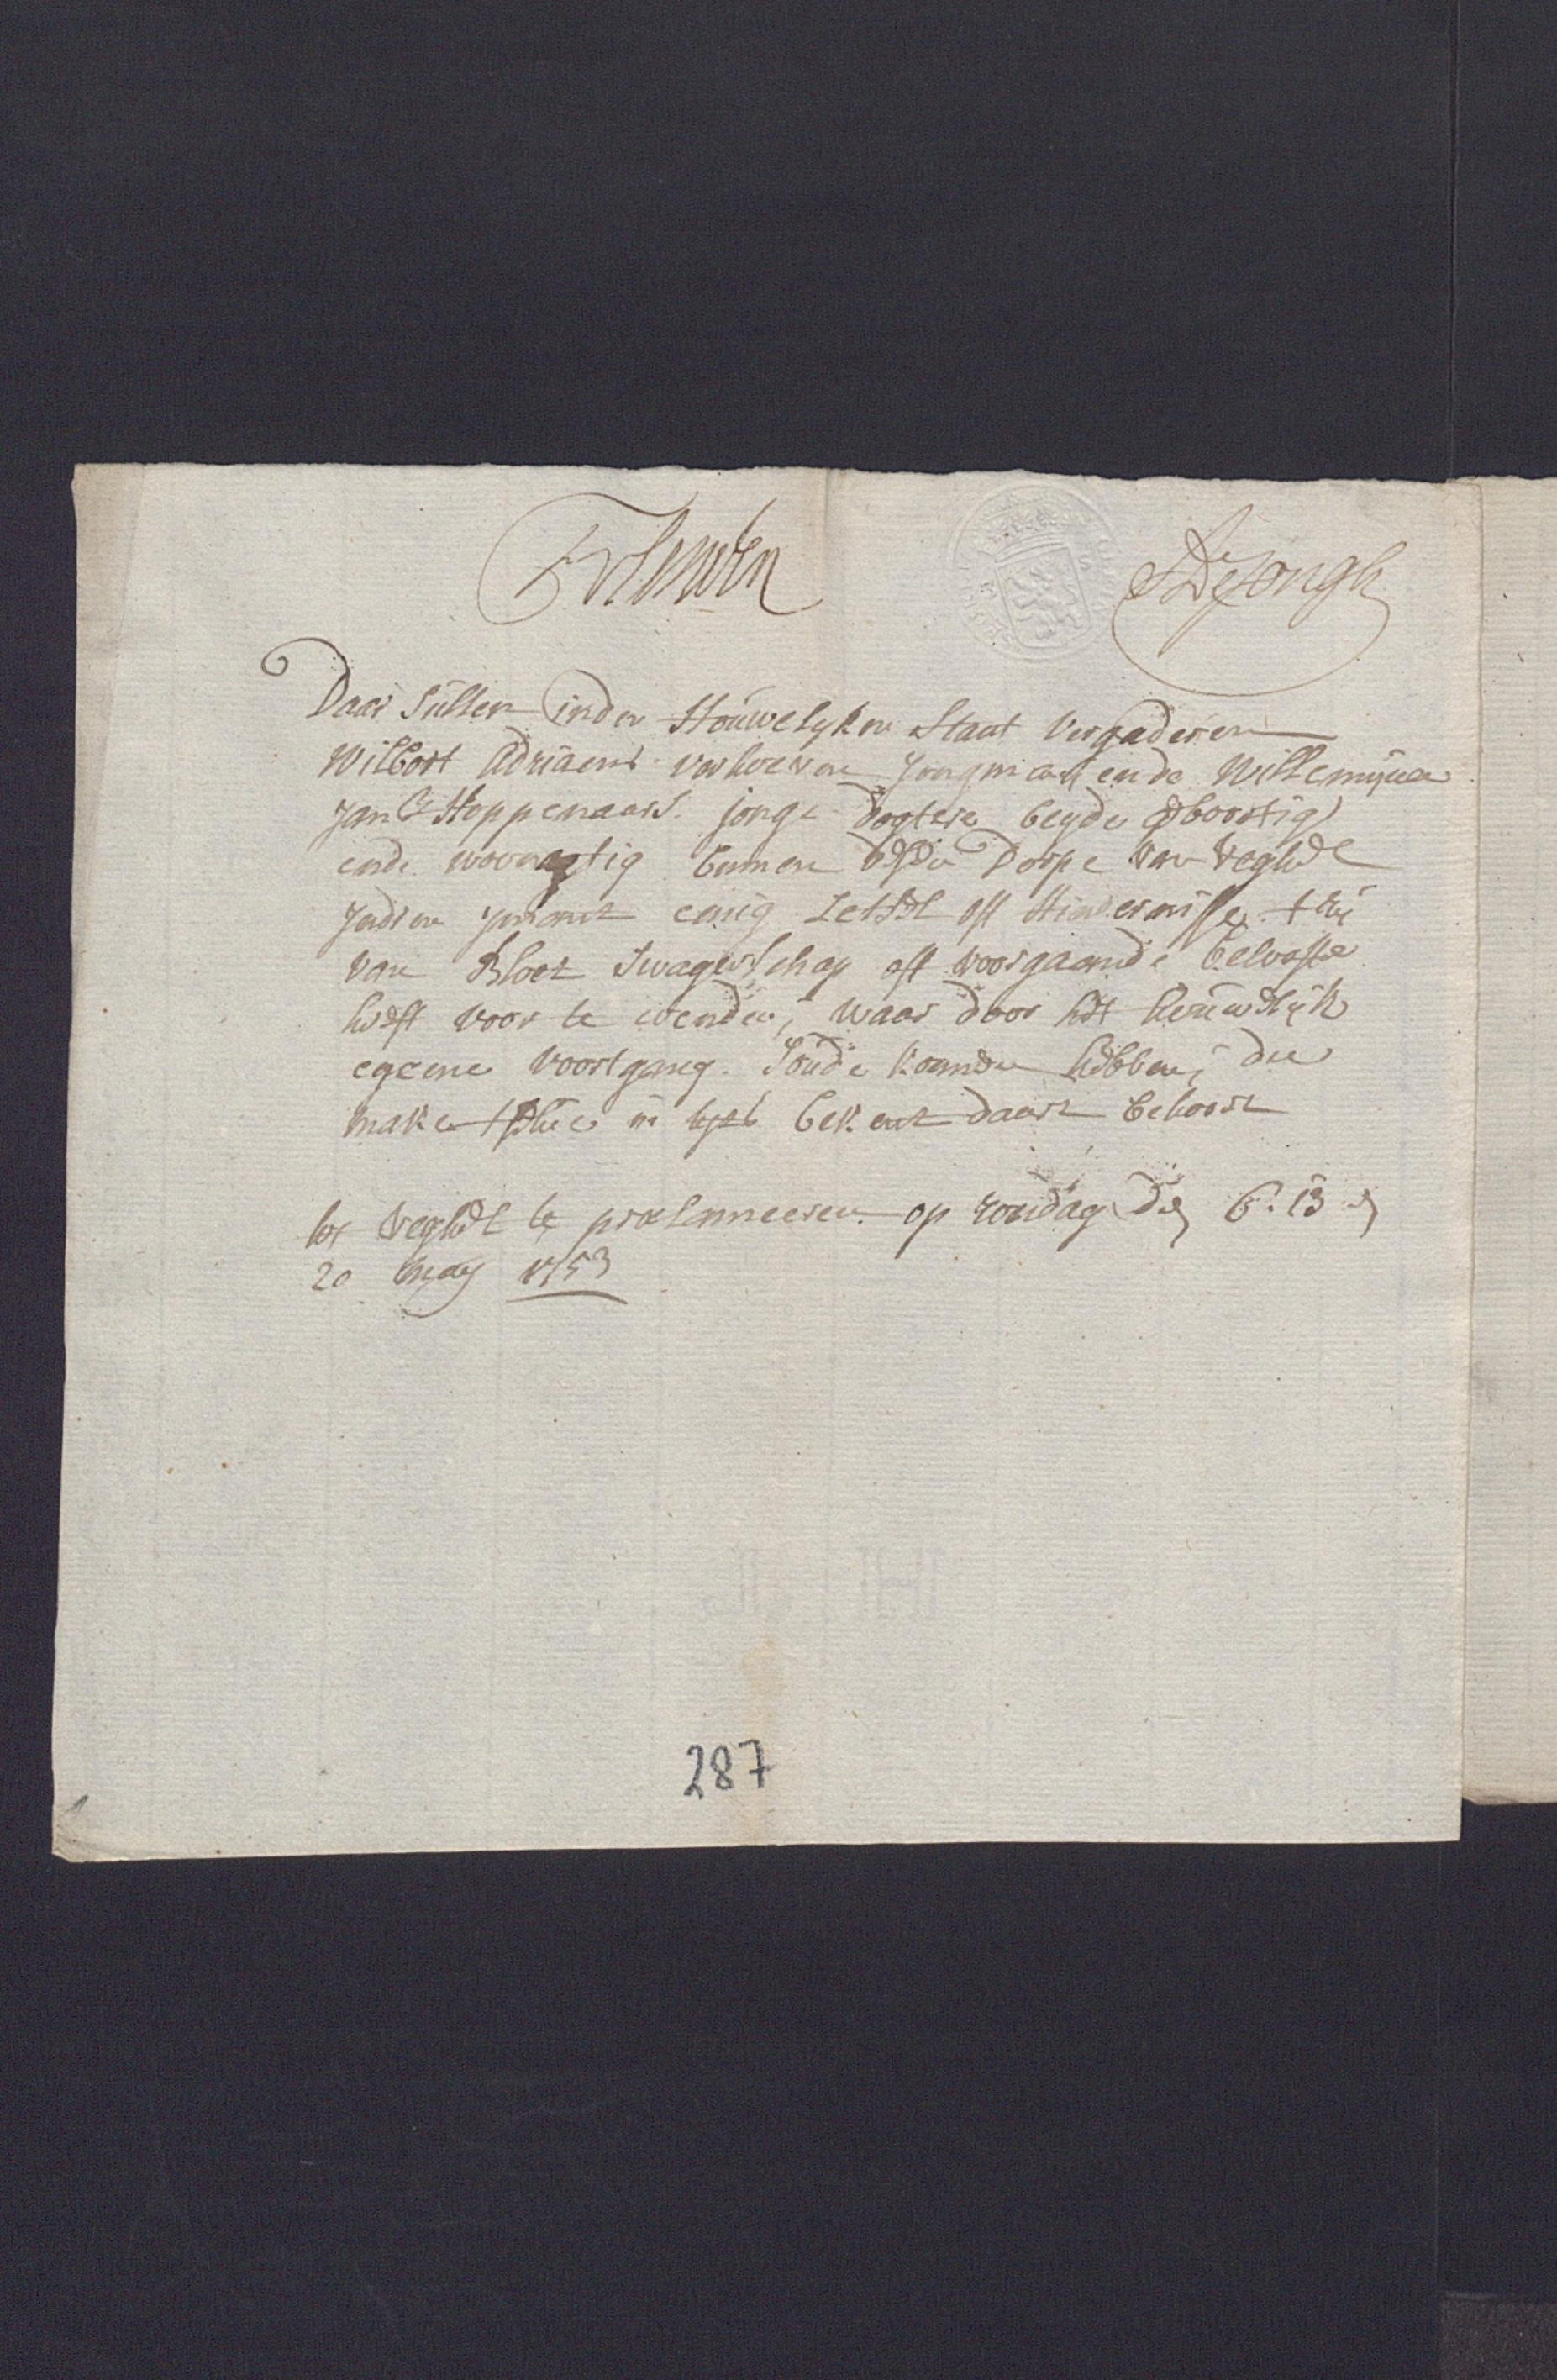 SDeJongh
Daar sullen inden Houwelyken Staat vergaderen
Wilbort Adriaens verhoeven Jongman ende Willemijna
Jan Hoppenaars. jonge dogtere beyde geboortig
ende woonagtig binnen desen Dorpe van Veghel
Jndien ymant eenig Letsel oft Hindernisse, tsy
van Bloet Swagerschap oft voorgaande belofte
heeft voor te wenden, waar door het houwelijk
egeene voortgang. Soude konnen hebben, die
make tselve in tyts bekent daart behoort
tot Veghel te proclameeren. op zondag den 6. 13 en
20 may 1753
287